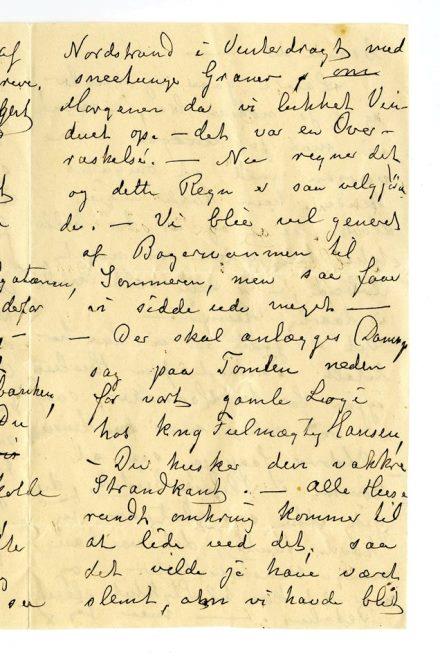 af Nordstrand i Vinterdragt med
sneetunge Graner, om
Morgenen da vi lukket Vin-
duet op. – det var en Over-
raskelse. – Nu regner det
og dette Regn er saa velgjøren
de. – Vi blir vel generet
af Bagervarmen til
Sommeren, men saa faar
vi sidde ude meget –
– Der skal anlægges Damp
sag paa Tomten neden
for vort gamle Logi
hos kng Fulmægtg Hansen,
– Du husker den vakkre
Strandkant. – Alle Huse
rundt omkring kommer til
at lide ved det, saa
det vilde jo have været
slemt, om vi havde blit